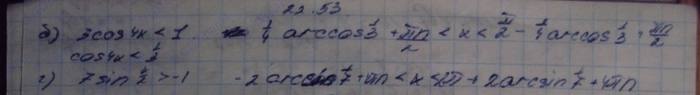 22.53
б) 3cos4x < 1 1/4 arccos 1/3 + πn/2 < x < π/2 - 1/4 arccos 1/3 + πn/2
cos4x < 1/3
г) 7sin x/2 > -1 -2arcsin 1/7 + πn < x < 2π + 2arcsin 1/7 + 4πn